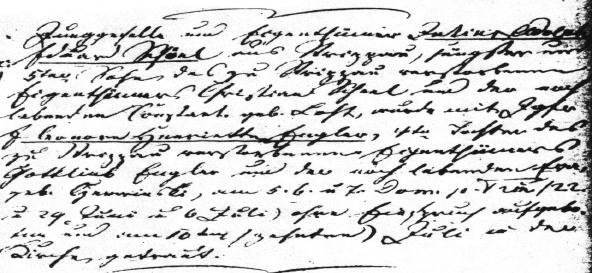 Junggeselle und Eigenthümer Julius
Eduard Schöel aus Strippau, jüngster und
5ter Sohn des zu Strippau verstorbenen
Eigenthümers Christian Scheel und der noch
lebenden Constant. geb. Loht, wurde mit Jgfr.
Honore Henriette Engler, 4te Tochter des
zu Strippau verstorbenen Eigenthümers
Gottlieb Engler und der noch lebenden
geb. am 5. 6. u 7. Dom. p. (22
u 29. Juni u 6 Juli) ohne Einspruch aufgebo-
ten und am 10ten (zehnten) Juli in der
Kirche getraut.